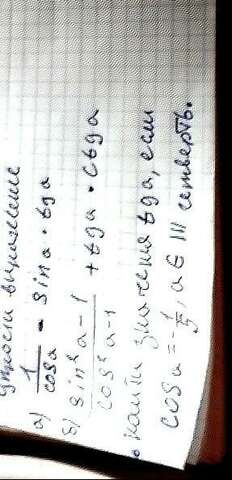 упрости выражение
а) 1/cosa - sina · tga
б) sin²a-1/cos²a-1 + tga · ctga
• найти значения tga, если
cosa = -1/5, a ∈ III четверть.